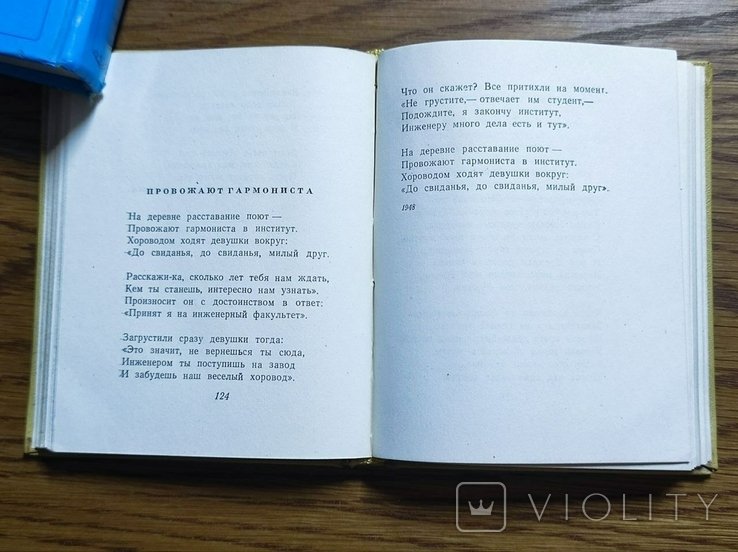 ПРОВОЖАЮТ ГАРМОНИСТА
На деревне расставание поют —
Провожают гармониста в институт.
Хороводом ходят девушки вокруг:
«До свиданья, до свиданья, милый друг.
Расскажи-ка, сколько лет тебя нам ждать,
Кем ты станешь, интересно нам узнать».
Произносит он с достоинством в ответ:
«Принят я на инженерный факультет».
Загрустили сразу девушки тогда:
«Это значит, не вернешься ты сюда,
Инженером ты поступишь на завод
И забудешь наш веселый хоровод».
124
Что он скажет? Все притихли на момент.
«Не грустите,— отвечает им студент,—
Подождите, я закончу институт,
Инженеру много дела есть и тут».
На деревне расставание поют —
Провожают гармониста в институт.
Хороводом ходят девушки вокруг:
«До свиданья, до свиданья, милый друг».
1948
VIOLITY